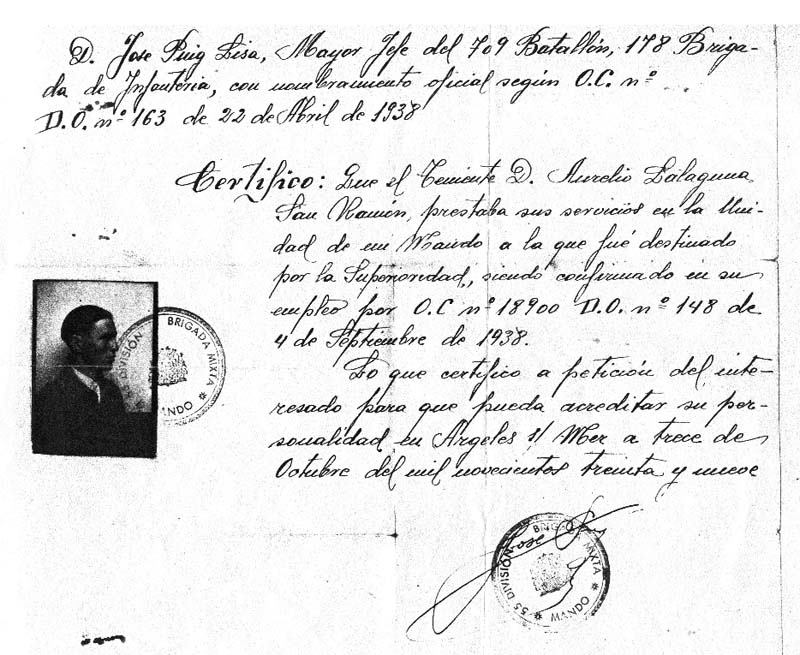 D. Jose Puig Lisa, Mayor Jefe del 709 Batallón, 178 Briga-
da de Infanteria, con nombramiento oficial según O.C. nº
D.O. nº 163 de 22 de Abril de 1938
Certifico: Que el Teniente D. Aurelio Lalaguna
San Ramón, prestaba sus servicios en la Uni-
dad de mi Mando a la que fué destinado
por la Superioridad, siendo confirmado en su
empleo por O.C nº 18900 D.O. nº 148 de
4 de Septiembre de 1938.
Lo que certifico a petición del inte-
resado para que pueda acreditar su per-
sonalidad, en Argeles s/ Mer a trece de
Octubre del mil novecientos treinta y nueve
DIVISIÓN BRIGADA MIXTA
MANDO
Jose
55 DIVISIÓN BRIGADA MIXTA
MANDO